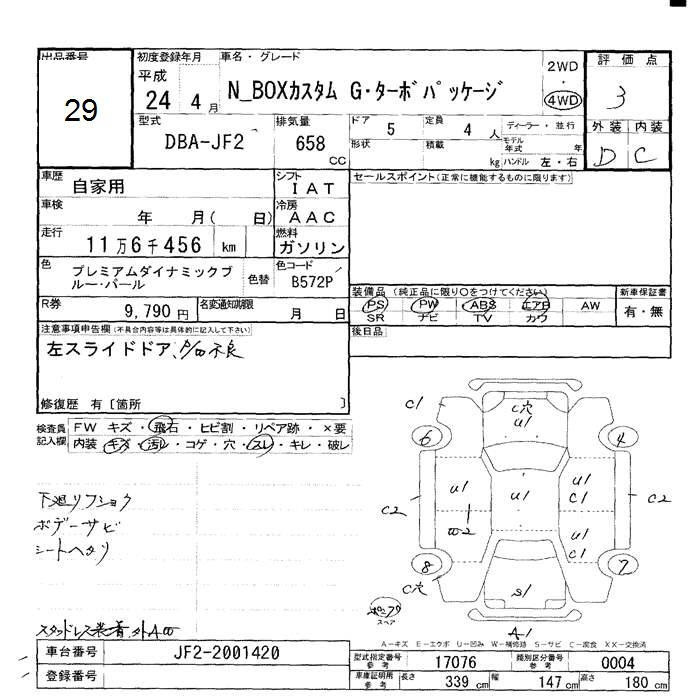 出品番号
29
初度登録年月
平成
24 4 月
車名・グレード
N_BOXカスタム G・ターボパッケージ
2WD
・
4WD
評価点
3
外装 内装
D C
型式
DBA-JF2
排気量
658
CC
ドア 5
定員 4 人
ディーラー・並行
形状
積載 kg
モデル年式 年
ハンドル 左・右
車歴
自家用
シフト
IAT
セールスポイント(正常に機能するものに限ります)
車検
年 月( 日)
冷房
AAC
走行
11万6千456 km
燃料
ガソリン
色
プレミアムダイナミックブ
ルー・パール
色替
色コード
B572P
R券
9,790 円
名変通知期限
月 日
装備品 (純正品に限り○をつけてください)
PS PW ABS エアB AW
SR ナビ TV カワ
新車保証書
有・無
後日品
注意事項申告欄(不具合内容等は具体的に記入して下さい)
左スライドドア、P/W不良
修復歴 有 [箇所 ]
検査員記入欄
FW キズ・飛石・ヒビ割・リペア跡・×要
内装・キズ・汚れ・コゲ・穴・スレ・キレ・破レ
下廻リフショク
ボデーサビ
シートヘタリ
スタッドレス装着
C1
C穴
U1
6
4
C2
U1
U1
U1
C1
C2
W-2
U1
C1
8
7
C穴
S1
A1
スペア
A-キズ E-エクボ U-凹み W-補修跡 S-サビ C-腐食 XX-交換済
車台番号
JF2-2001420
登録番号
型式指定番号 参考
17076
類別区分番号 参考
0004
車庫証明用 参考
長さ 339 cm
幅 147 cm
高さ 180 cm